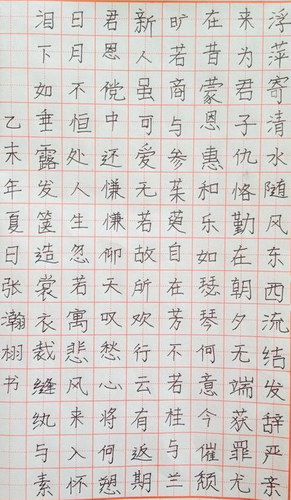 浮萍寄清水随风东西流结发辞严亲
来为君子仇恪勤在朝夕无端获罪尤
在昔蒙恩惠和乐如瑟琴何意今催颓
旷若商与参茱萸自在芳不若桂与兰
新人虽可爱无若故所欢行云有返期
君恩傥中还慊慊仰天叹愁心将何愬
日月不恒处人生忽若寓悲风来入怀
泪下如垂露发箧造裳衣裁缝纨与素
乙未年夏日张瀚栩书